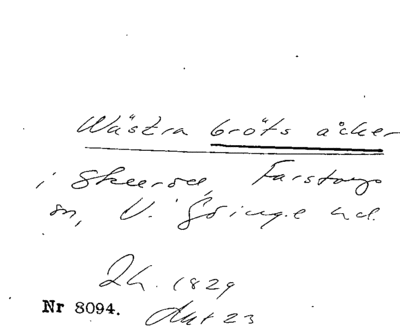 Wästra bröts åcker
i Skeurou, Farstorps
sn, V. Göinge hd.
Lh. 1829
Nr 8094. Akt 23